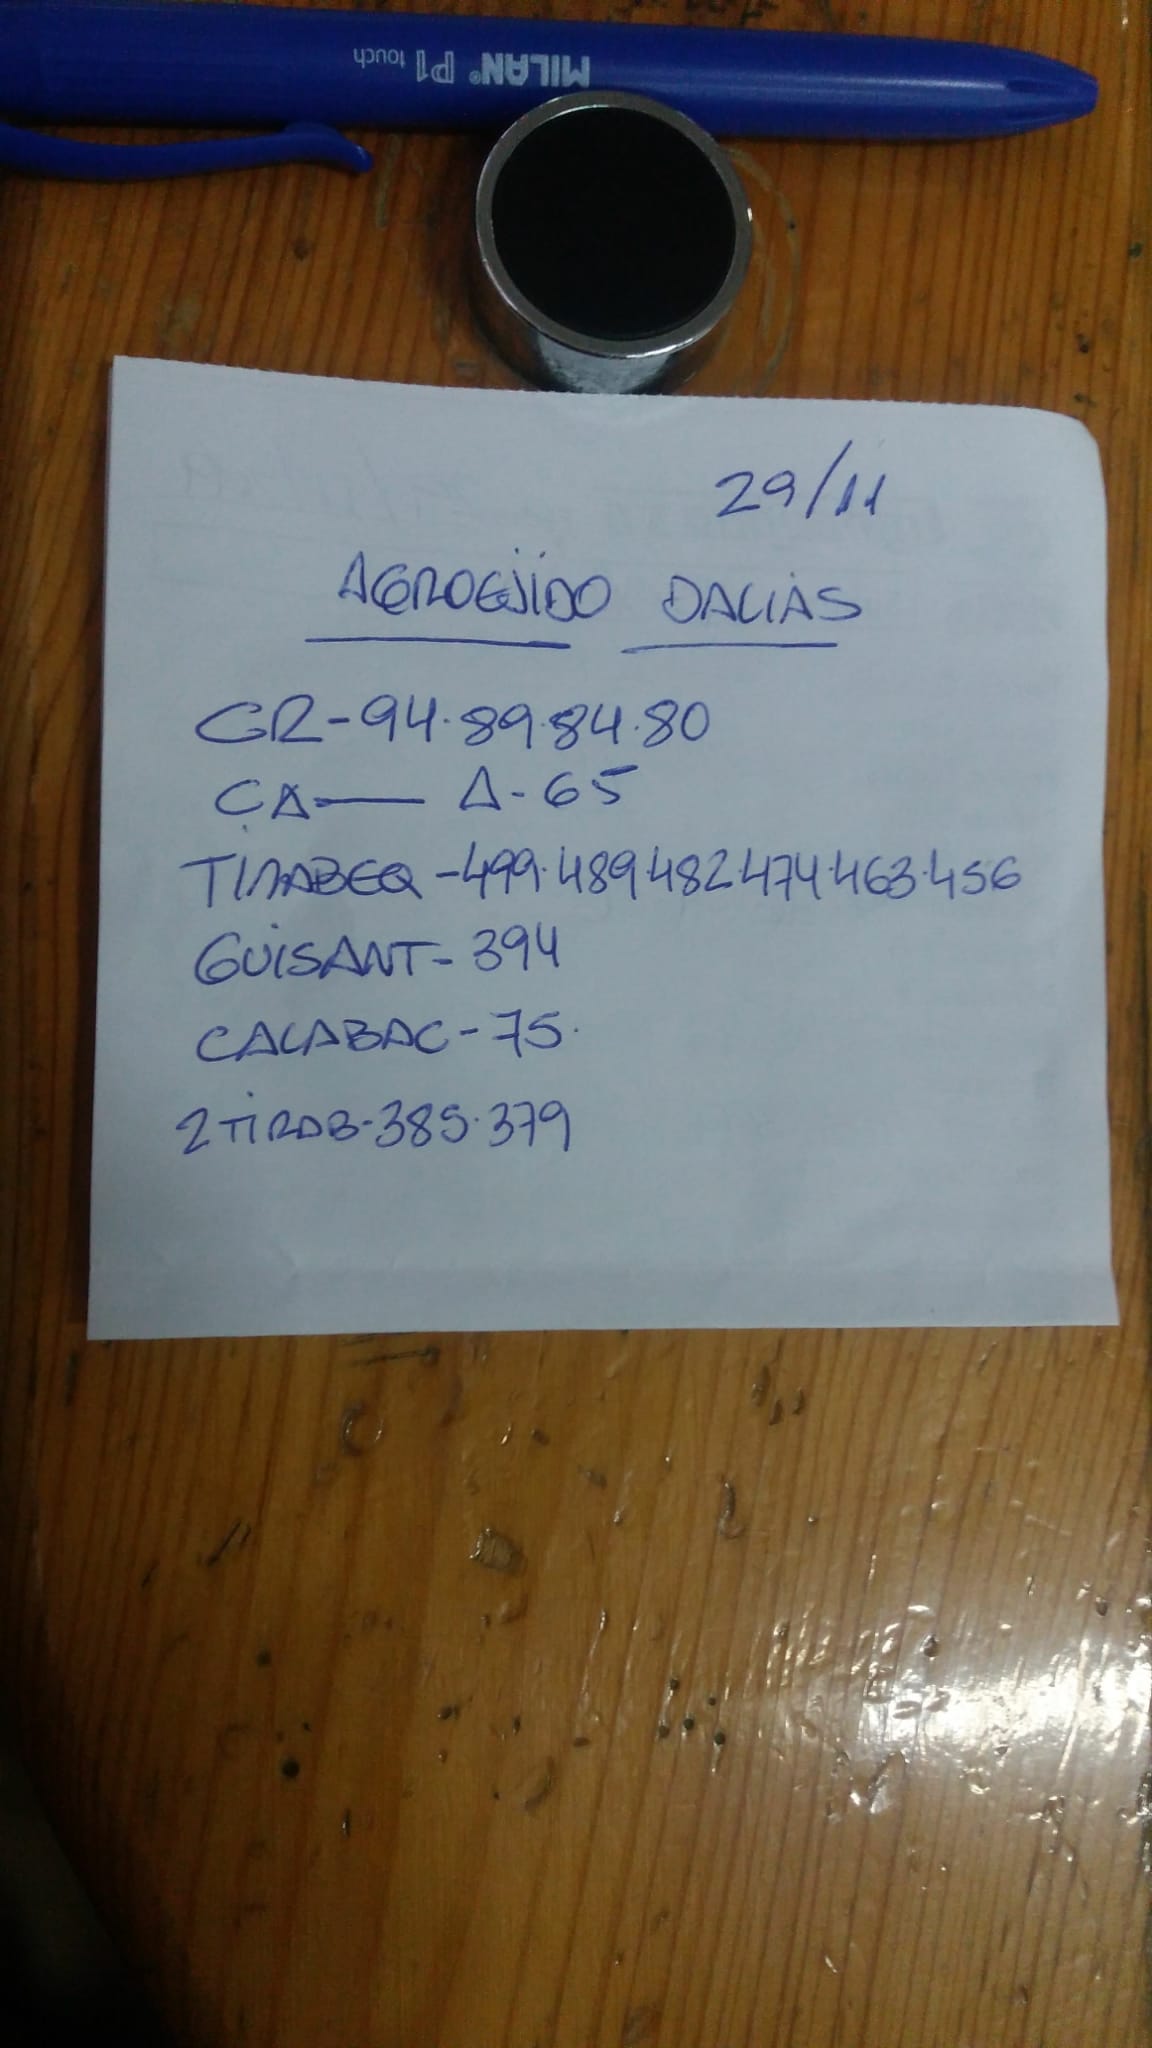 MILAN® P1 touch
29/11
AGROEJIDO DALIAS
GR-94.89.84.80
CA— A-65
TIRABEQ-499.489.482.474.463.456
GUISANT-394
CALABAC-75.
2 TIRAB-385.379